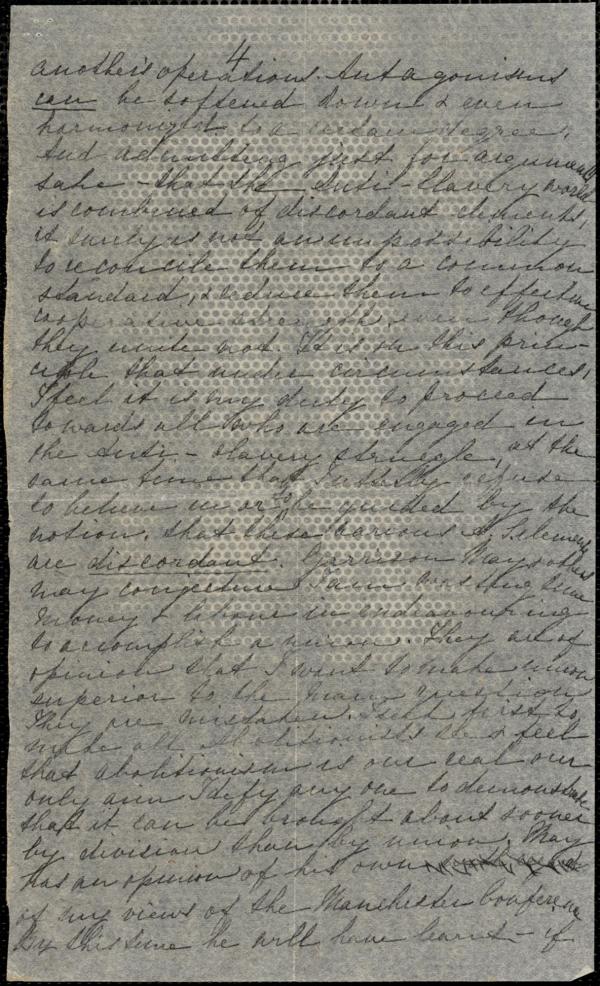 4
another's operations. Antagonisms
can be softened down & even
harmonized to a certain degree.
And admitting just for argument
sake - that the Anti-Slavery world
is combined of discordant elements,
it surely is not an impossibility
to reconcile them to a common
standard, & reduce them to effective
cooperative strength, even though
they unite not. It is on this prin-
ciple that under circumstances,
I feel it is my duty to proceed
towards all who are engaged in
the Anti-Slavery struggle, at the
same time that I utterly refuse
to believe in or to be guided by the
notion, that these various A. S. elements
are discordant. Garrison May & others
may conjecture I am wasting time
money & labour in endeavouring
to accomplish a union. They are of
opinion that I want to make union
superior to the main question
They are mistaken. I seek first to
make all Abolitionists see & feel
that abolitionism is our real our
only aim I defy any one to demonstrate
that it can be brought about sooner
by division than by union. May
has an opinion of his own
of my views of the Manchester Conference
By this time he will have learnt - if